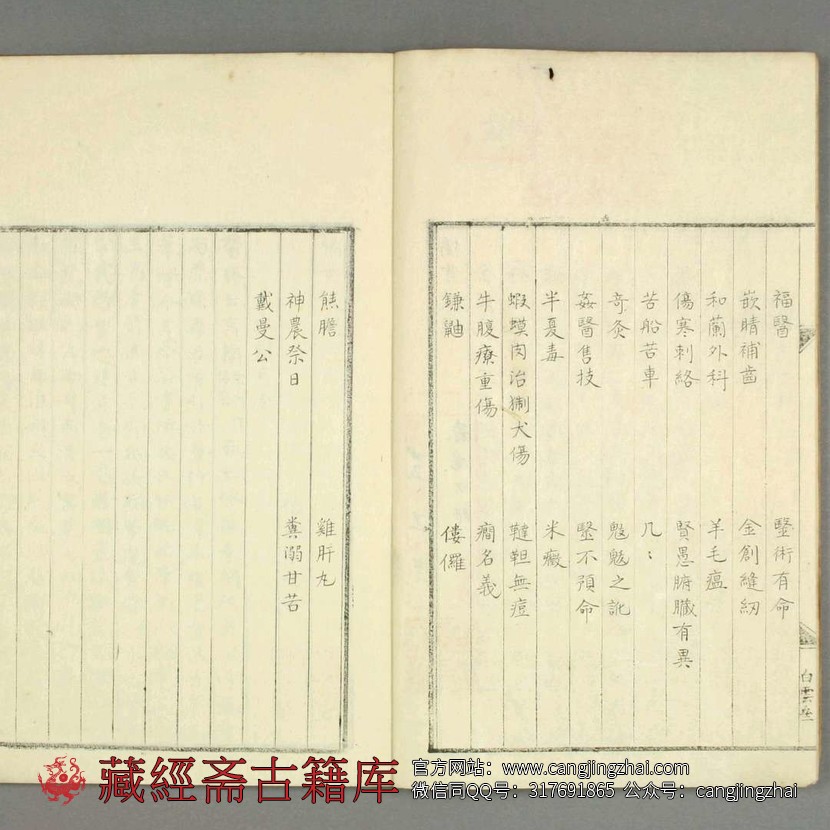 福醫　醫術有命
嵌睛補齒　金創縫紉
和蘭外科　羊毛瘟
傷寒刺絡　賢愚腑臟有異
苦船苦車　几〻
奇灸　魃魃之訛
姦醫售技　醫不預命
半夏毒　米癥
蝦蟆肉治猘犬傷　韃靼無痘
牛腹療重傷　癇名義
鎌鼬　僂儸
白雲
熊膽　雞肝丸
神農祭日　糞溺甘苦
戴曼公
藏經斋古籍库
官方网站：www.cangjingzhai.com
微信同QQ号：317691865 公众号：cangjingzhai